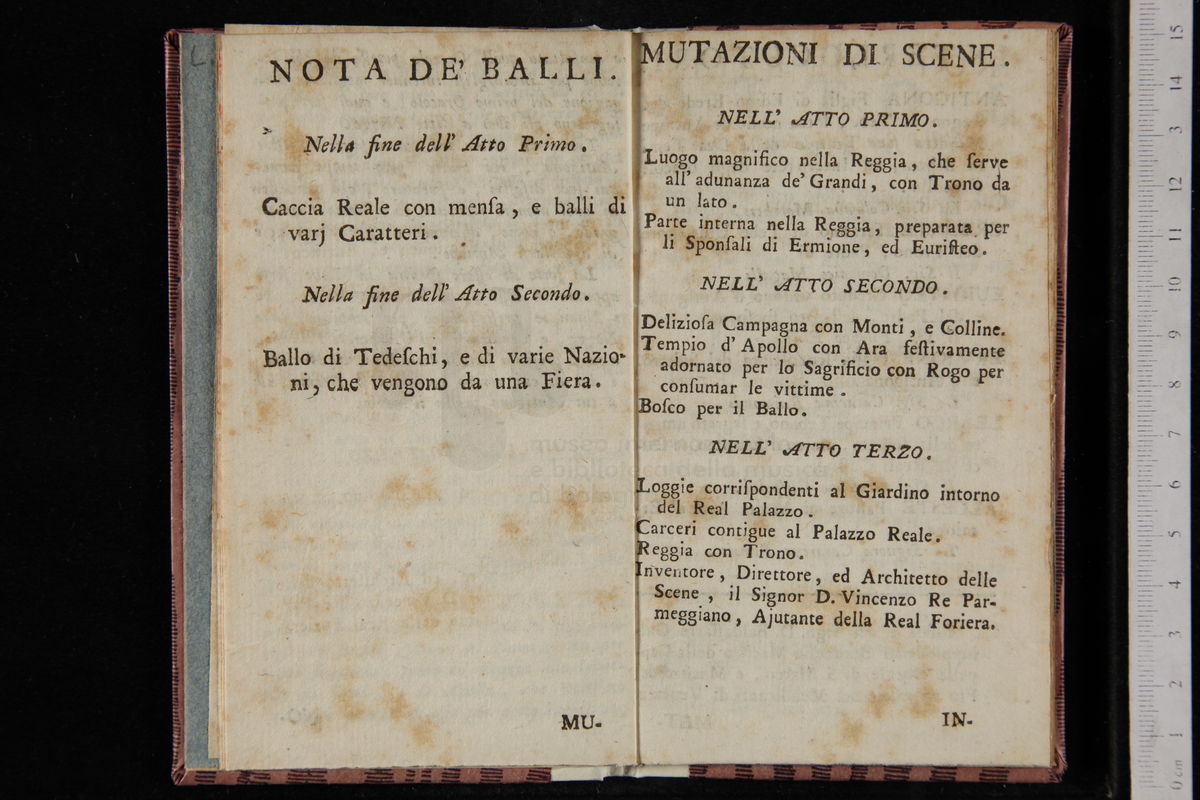 NOTA DE' BALLI.
Nella fine dell' Atto Primo.
Caccia Reale con menſa, e balli di
varj Caratteri.
Nella fine dell' Atto Secondo.
Ballo di Tedeſchi, e di varie Nazio-
ni, che vengono da una Fiera.
MU-
MUTAZIONI DI SCENE.
NELL' ATTO PRIMO.
Luogo magnifico nella Reggia, che ſerve
all' adunanza de' Grandi, con Trono da
un lato.
Parte interna nella Reggia, preparata per
li Sponſali di Ermione, ed Euriſteo.
NELL' ATTO SECONDO.
Delizioſa Campagna con Monti, e Colline.
Tempio d' Apollo con Ara feſtivamente
adornato per lo Sagrificio con Rogo per
conſumar le vittime.
Boſco per il Ballo.
NELL' ATTO TERZO.
Loggie corriſpondenti al Giardino intorno
del Real Palazzo.
Carceri contigue al Palazzo Reale.
Reggia con Trono.
Inventore, Direttore, ed Architetto delle
Scene, il Signor D. Vincenzo Re Par-
meggiano, Ajutante della Real Foriera.
IN-
15
14
13
12
11
10
9
8
7
6
5
4
3
2
1
0 cm